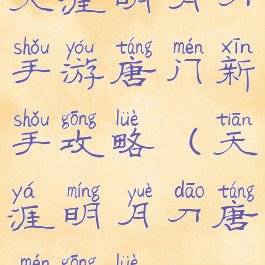 天涯明月刀
shǒu yóu táng mén xīn
手游唐门新
shǒu gōng lüè tiān
手攻略（天
yá míng yuè dāo táng
涯明月刀唐
mén gōng lüè